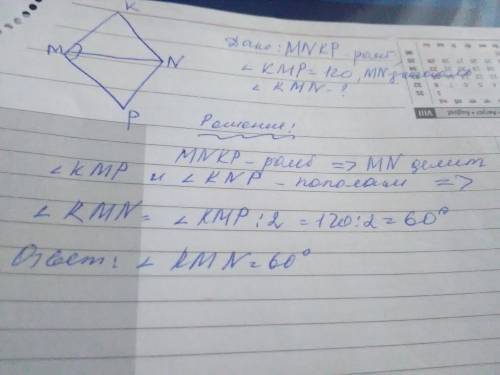 K
M
N
P
Дано: MNKP ромб,
∠KMP=120, MN диагональ
∠KMN-?
Решение:
MNKP-ромб => MN делит
∠KMP и ∠KNP - пополам =>
∠KMN = ∠KMP:2 = 120:2 = 60°
Ответ: ∠KMN=60°
VIII
Август • August